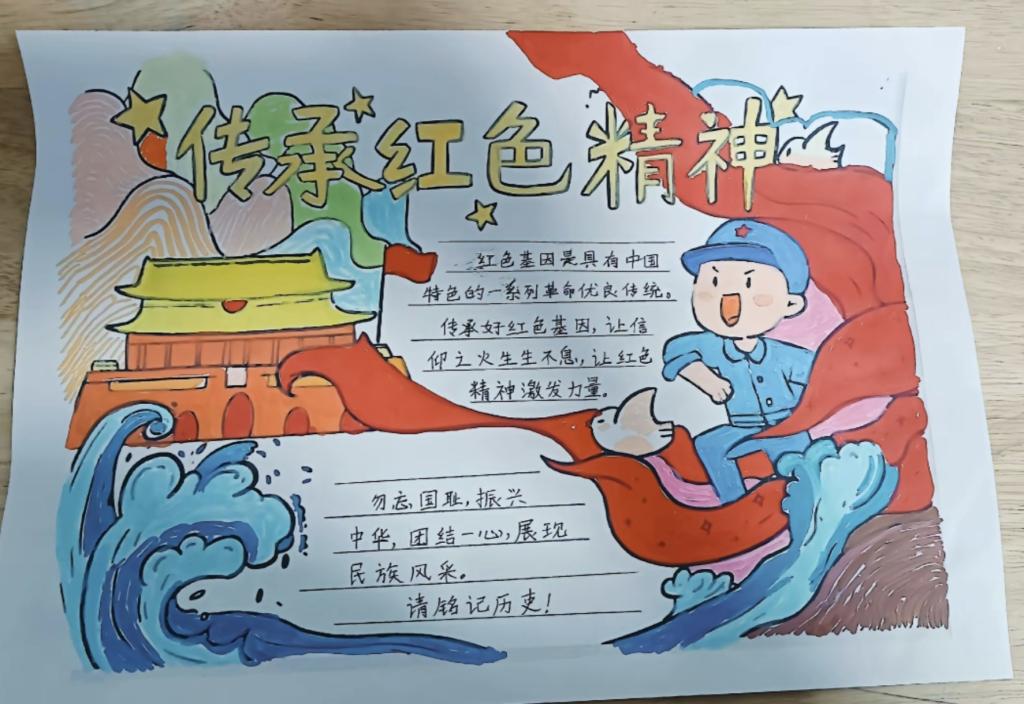 传承红色精神
红色基因是具有中国
特色的一系列革命优良传统。
传承好红色基因，让信
仰之火生生不息，让红色
精神激发力量。
勿忘国耻，振兴
中华，团结一心，展现
民族风采。
请铭记历史！